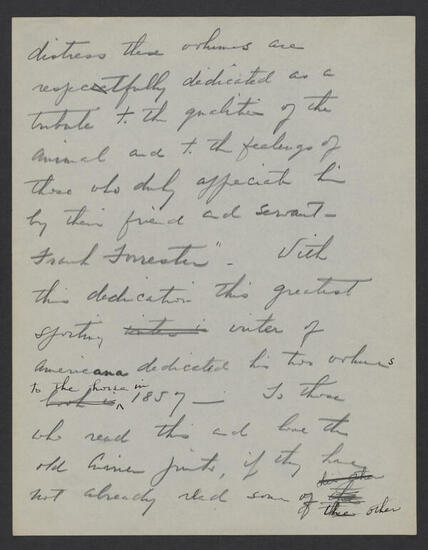 distress these volumes are
respectfully dedicated as a
tribute to the qualities of the
animal and to the feelings of
those who duly appreciate him
by their friend and servant –
Frank Forrester" – With
this dedication this greatest
sporting writer of
Americana dedicated his two volumes
to the horse in 1857 – To those
who read this and love the
old, if they have
not already read some of
three other